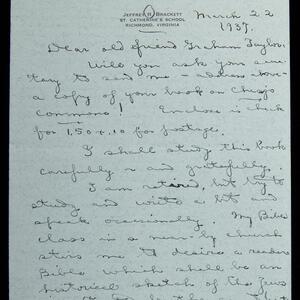 JEFFREY R. BRACKETT
ST. CATHERINE'S SCHOOL
RICHMOND, VIRGINIA
March 22
1937.
Dear old friend Graham Taylor:
Will you ask your secre-
tary to send me - address above -
a copy of your book on Chicago
Commons! Enclose is check
for 1.50 + .10 for postage.
I shall study this book
carefully and gratefully.
I am retired, but try to
study and write a bit and
speak occasionally. My Bible
class in a near-by church
stirs me to desire a readers
Bible which shall be an
historical sketch of the Jews